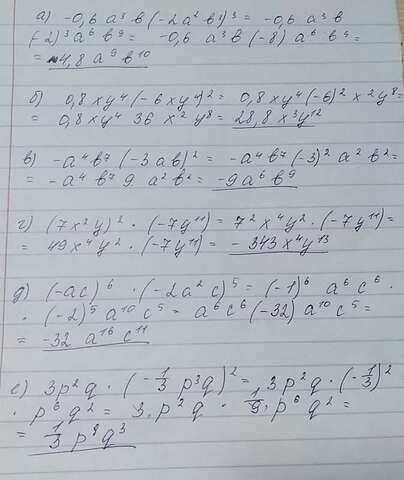 а) -0,6 a³ b (-2a² b³)³ = -0,6 a³ b
(-2)³ a⁶ b⁹ = -0,6 a³ b (-8) a⁶ b⁹ =
= 4,8 a⁹ b¹⁰
б) 0,8 x y⁴ (-6 x y⁴)² = 0,8 x y⁴ (-6)² x² y⁸ =
= 0,8 x y⁴ 36 x² y⁸ = 28,8 x³ y¹²
в) -a⁴ b⁷ (-3 a b)² = -a⁴ b⁷ (-3)² a² b² =
= -a⁴ b⁷ 9 a² b² = -9 a⁶ b⁹
г) (7 x² y)² · (-7 y¹¹) = 7² x⁴ y² · (-7 y¹¹) =
= 49 x⁴ y² · (-7 y¹¹) = - 343 x⁴ y¹³
д) (-ac)⁶ · (-2 a² c)⁵ = (-1)⁶ a⁶ c⁶ ·
· (-2)⁵ a¹⁰ c⁵ = a⁶ c⁶ (-32) a¹⁰ c⁵ =
= -32 a¹⁶ c¹¹
е) 3p² q · (-1/3 p³ q)² = 3p² q · (-1/3)² ·
· p⁶ q² = 3 · p² q · 1/9 · p⁶ q² =
= 1/3 p⁸ q³